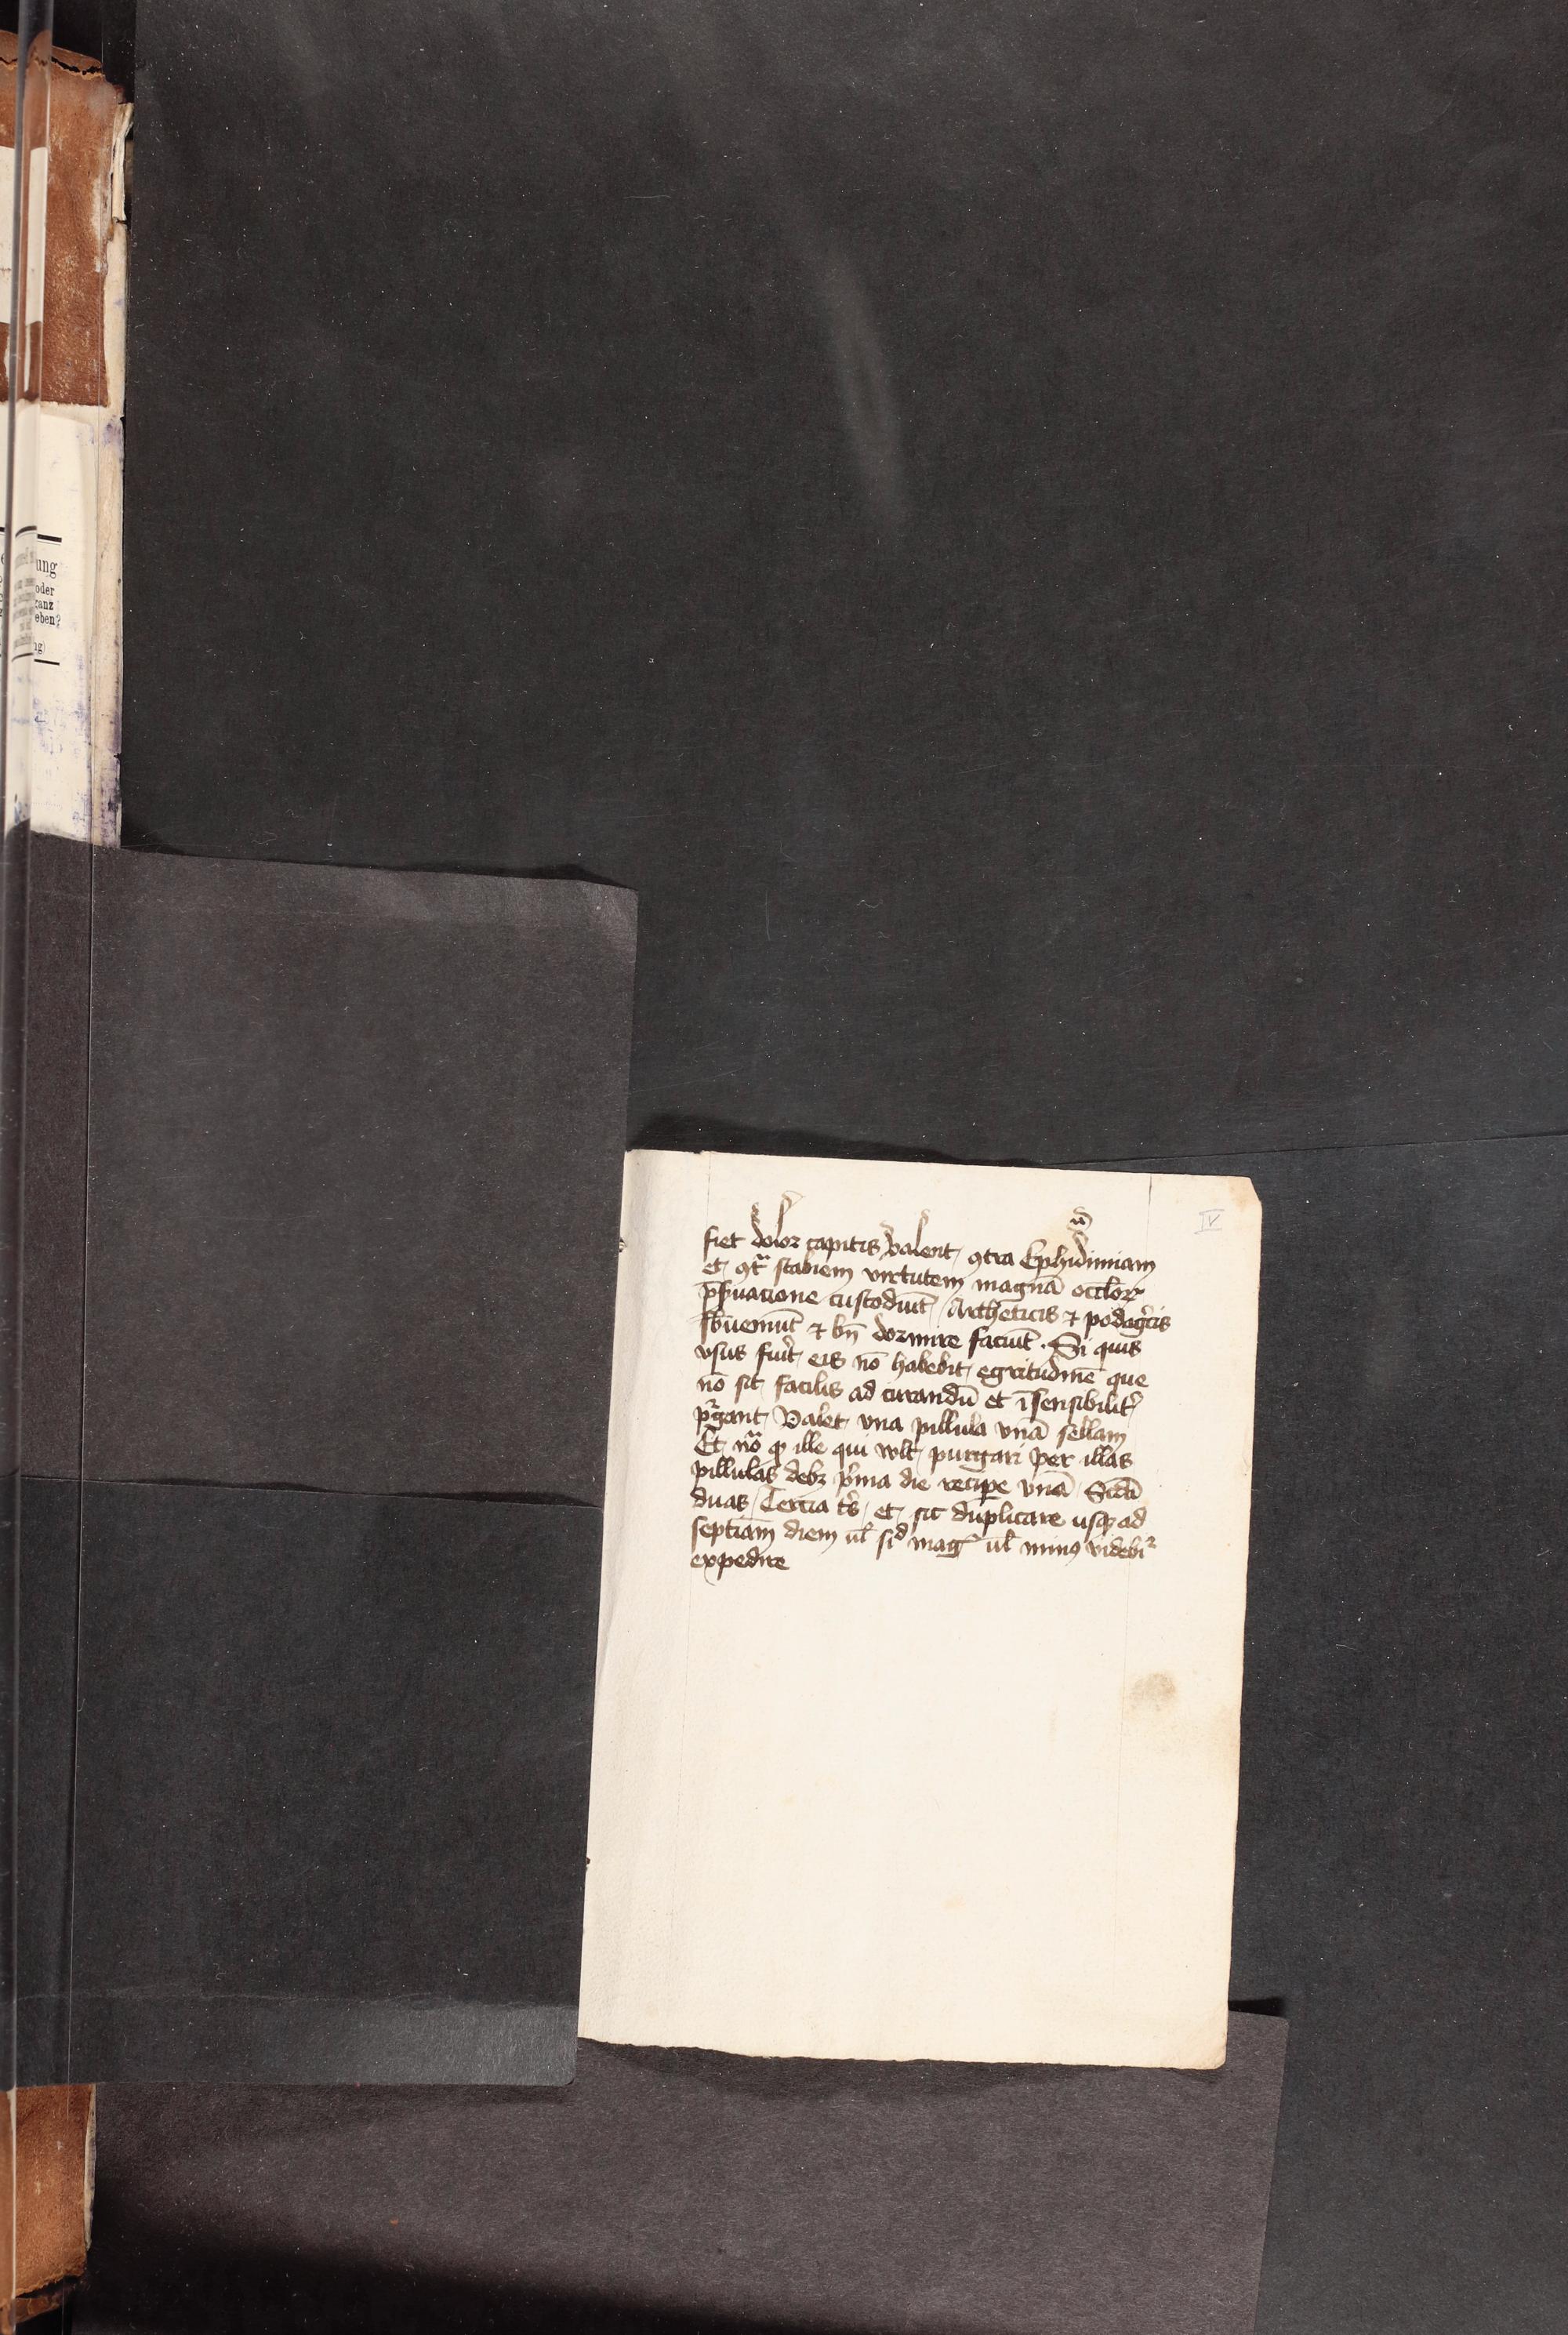 ung
oder
ganz
eben?
ng)
IV
fiet dolor capitis valent ꝯtra Ephidimiam
et ꝯtᷓ scabiem virtutem magnā oculoꝝ
p̄seruatione custodiūt Artheticis ⁊ podagͥcis
subueniūt ⁊ bn̄ dormire faciūt . Si quis
vsus fuīt eis nō habebit egritudinē que
nō sit facilis ad curandū et īsensibilitʼ
pᷣgant Valet vna pillula vnā sellam
Et nōᷓ ꝙ ille qui wlt purgari per illas
pillulas debꝫ pͥma die recipe vnā Scdā
duas Tercia tͤs et sic duplicare usqꝫ ad
septīam diem ul̄ scdͫ magꝭ ul̄ minꝰ videbiᷣ
expedire